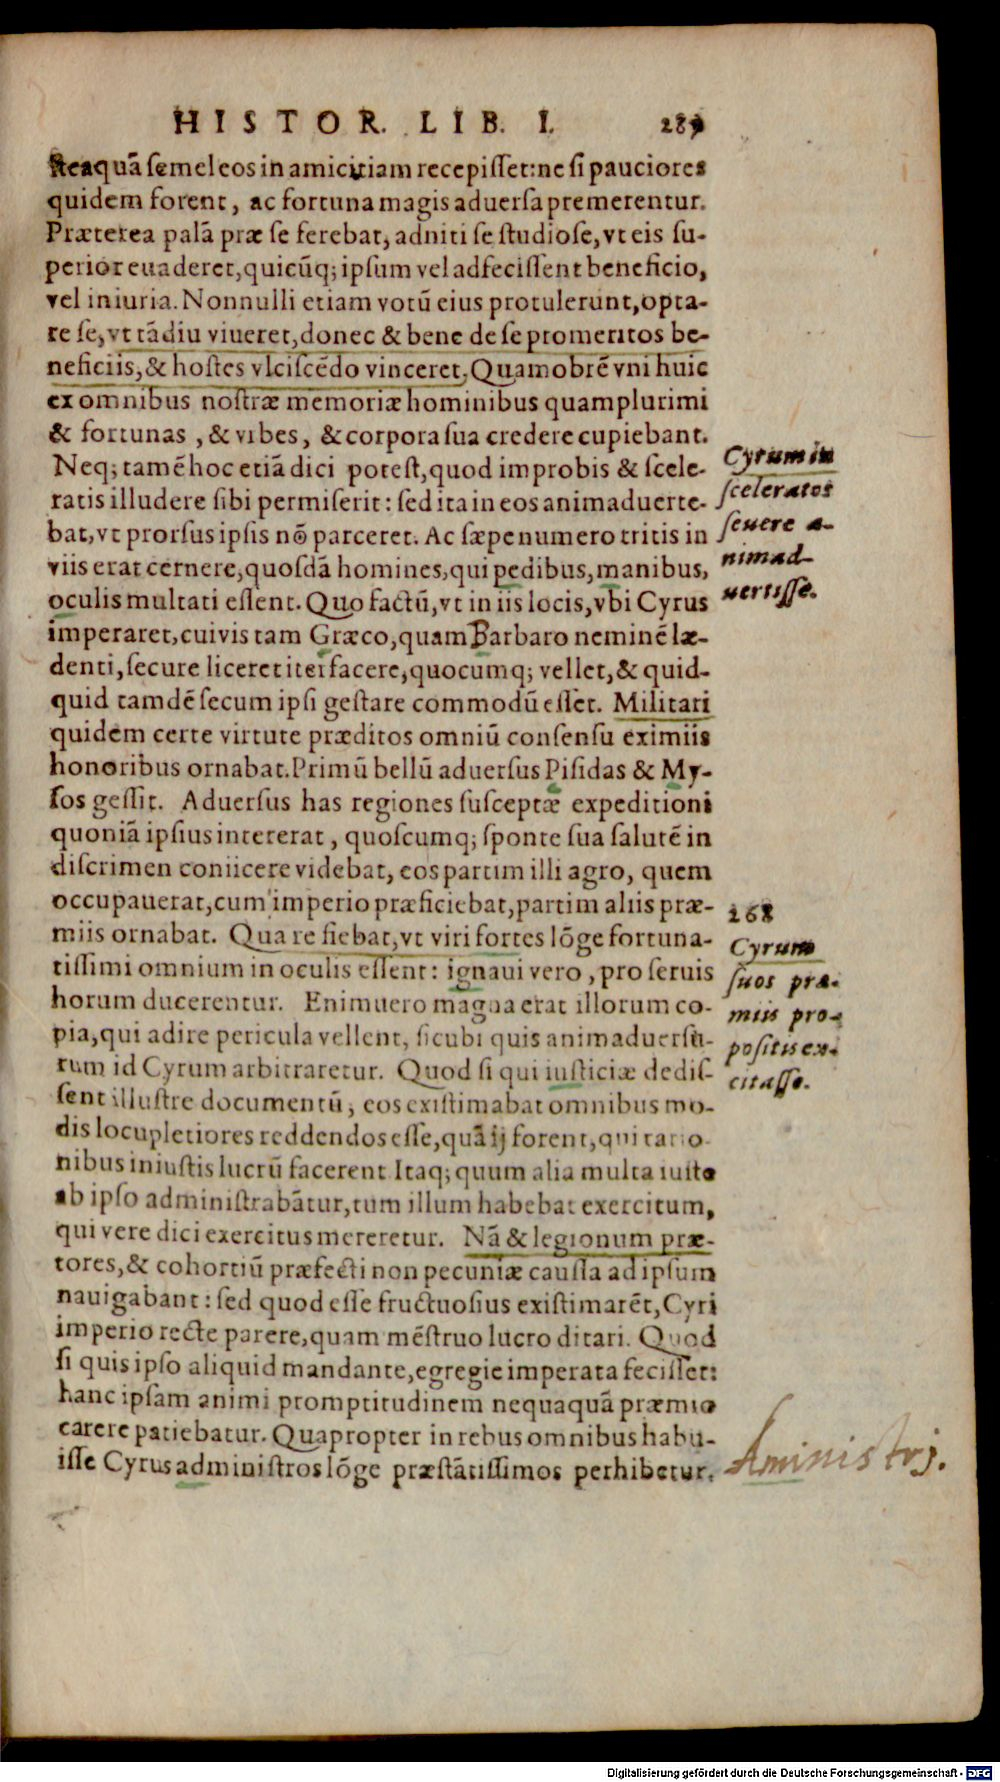 HISTOR. LIB. I. 289
steaquā semel eos in amicitiam recepisset: ne si pauciores
quidem forent, ac fortuna magis aduersa premerentur.
Præterea palā præ se ferebat, adniti se studiose, vt eis su-
perior euaderet, quicūq; ipsum vel adfecissent beneficio,
vel iniuria. Nonnulli etiam votū eius protulerunt, opta-
re se, vt tādiu viueret, donec & bene de se promeritos be-
neficiis, & hostes vlciscēdo vinceret. Quamobrē vni huic
ex omnibus nostræ memoriæ hominibus quamplurimi
& fortunas , & vrbes, & corpora sua credere cupiebant.
Neq; tamē hoc etiā dici potest, quod improbis & scele-
ratis illudere sibi permiserit: sed ita in eos animaduerte-
bat, vt prorsus ipsis nō parceret. Ac sæpenumero tritis in
viis erat cernere, quosdā homines, qui pedibus, manibus,
oculis multati essent. Quo factū, vt in iis locis, vbi Cyrus
imperaret, cuivis tam Græco, quam Barbaro neminē læ-
denti, secure liceret iter facere, quocumq; vellet, & quid-
quid tamdē secum ipsi gestare commodū esset. Militari
quidem certe virtute præditos omniū consensu eximiis
honoribus ornabat. Primū bellū aduersus Pisidas & My-
sos gessit. Aduersus has regiones susceptæ expeditioni
quoniā ipsius intererat, quoscumq; sponte sua salutē in
discrimen coniicere videbat, eos partim illi agro, quem
occupauerat, cum imperio præficiebat, partim aliis præ-
miis ornabat. Qua re fiebat, vt viri fortes lōge fortuna-
tissimi omnium in oculis essent: ignaui vero, pro seruis
horum ducerentur. Enimuero magna erat illorum co-
pia, qui adire pericula vellent, sicubi quis animaduersū-
rum id Cyrum arbitraretur. Quod si qui iusticiæ dedis-
sent illustre documentū, eos existimabat omnibus mo-
dis locupletiores reddendos esse, quā ij forent, qui ratio
nibus iniustis lucrū facerent Itaq; quum alia multa iuste
ab ipso administrabātur, tum illum habebat exercitum,
qui vere dici exercitus mereretur. Nā & legionum præ-
tores, & cohortiū præfecti non pecuniæ caussa ad ipsum
nauigabant: sed quod esse fructuosius existimarēt, Cyri
imperio recte parere, quam mēstruo lucro ditari. Quod
si quis ipso aliquid mandante, egregie imperata fecisset:
hanc ipsam animi promptitudinem nequaquā præmio
carere patiebatur. Quapropter in rebus omnibus habu-
isse Cyrus administros lōge præstātissimos perhibetur.
Cyrum in
sceleratos
seuere a-
nimad-
uertisse.
268
Cyrum
suos præ-
miis pro-
positis ex-
citasse.
Aministrj.
Digitalisierung gefördert durch die Deutsche Forschungsgemeinschaft - DFG